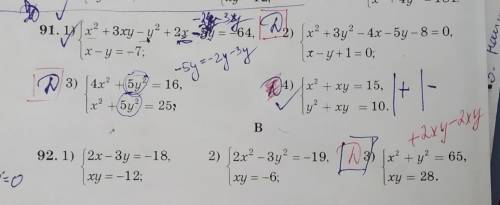 91. 1) { x² + 3xy − y² + 2x − 5y = −64,
x − y = −7;
−5y = −2y − 3y
Д 2) { x² + 3y² − 4x − 5y − 8 = 0,
x − y + 1 = 0;
Д 3) { 4x² + 5y² = 16,
x² + 5y² = 25;
4) { x² + xy = 15,
y² + xy = 10.
| + | −
В
+2xy − 2xy
92. 1) { 2x − 3y = −18,
xy = −12;
2) { 2x² − 3y² = −19.
xy = −6;
Д 3) { x² + y² = 65,
xy = 28.
=0